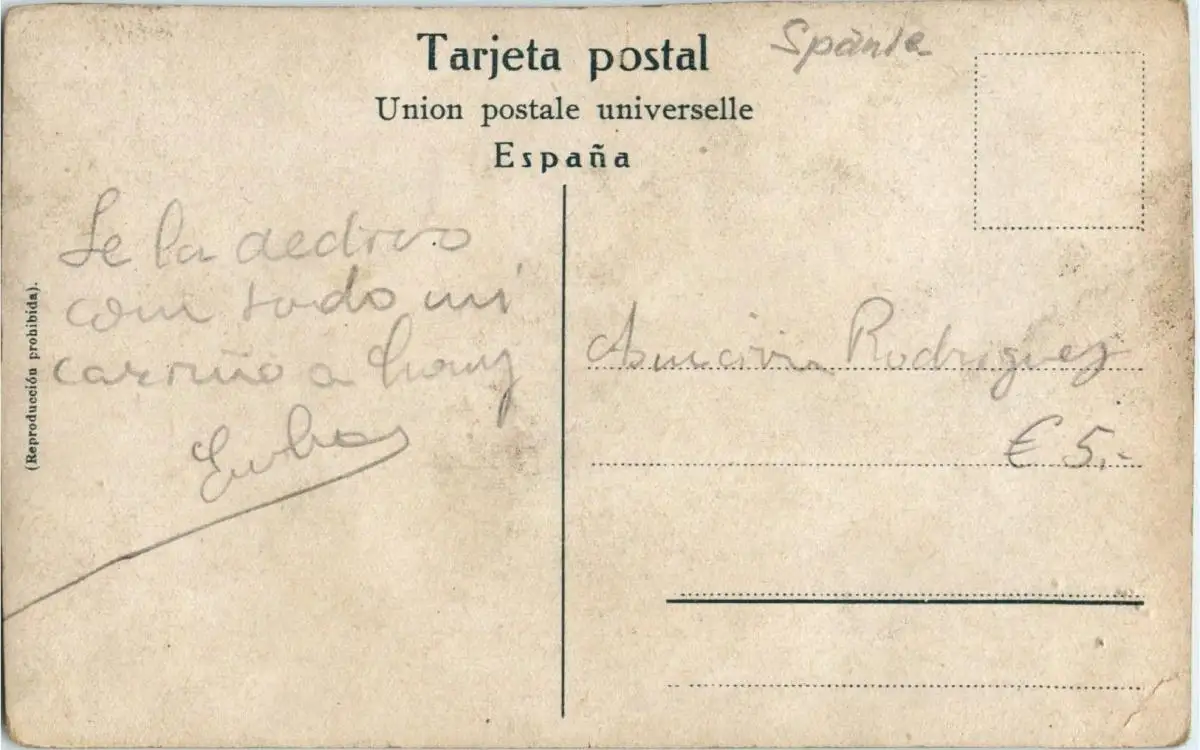 Tarjeta postal
Union postale universelle
España
(Reproducción prohibida).
Se la dedico
com todo mi
cariño a
Asuncion Rodriguez
€ 5.-